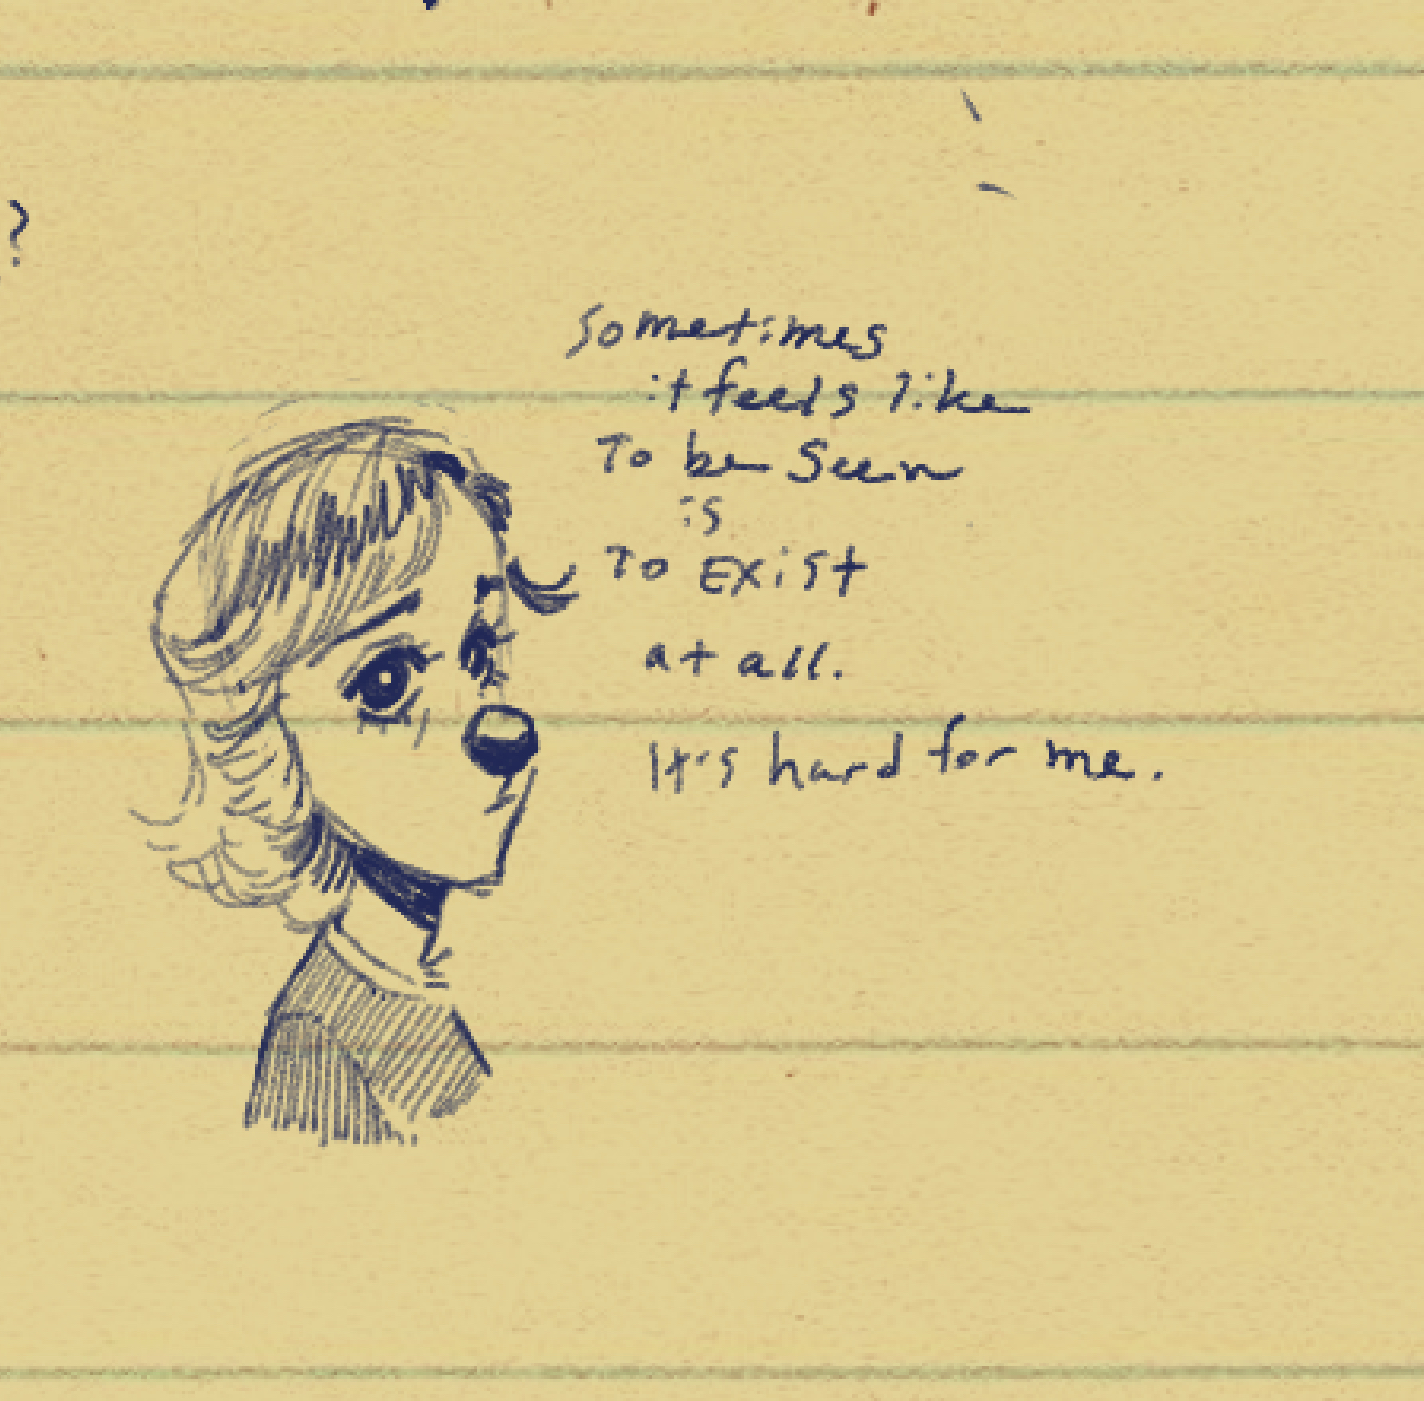 ?
Sometimes
it feels like
To be Seen
is
To Exist
at all.
It's hard for me.